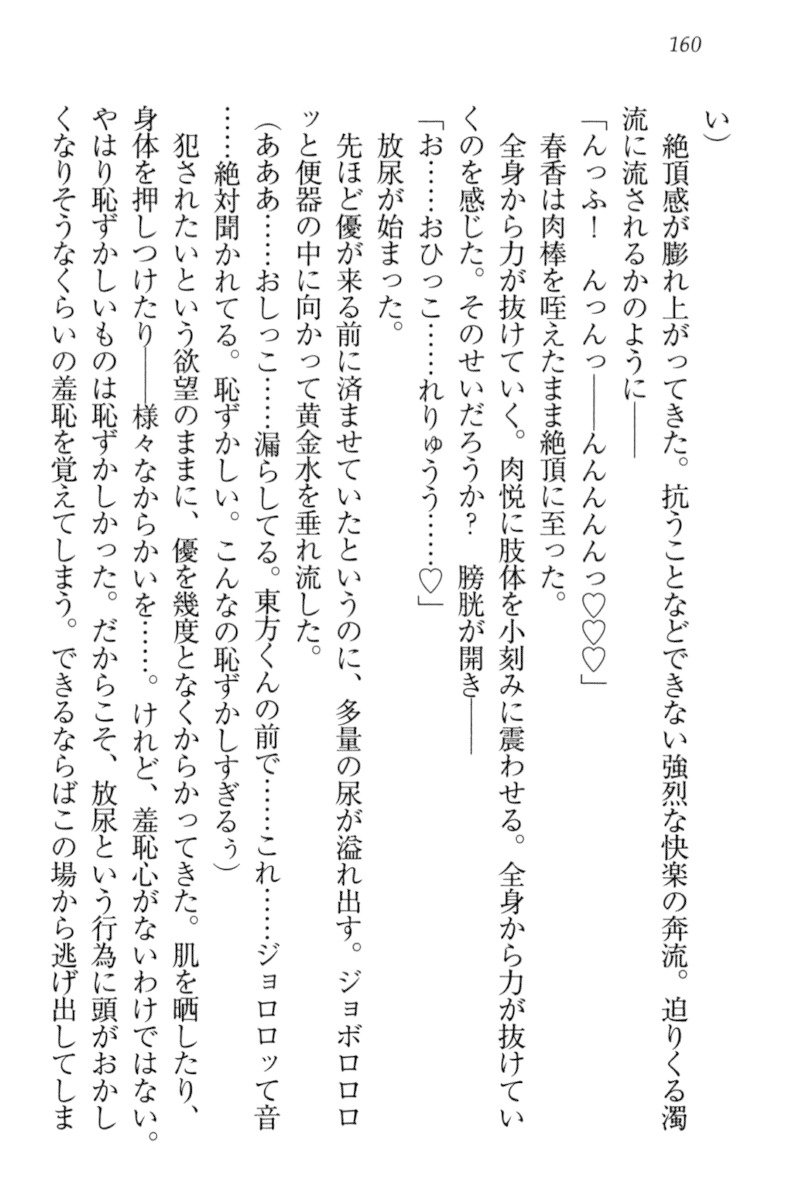 160
い）
　絶頂感が膨れ上がってきた。抗うことなどできない強烈な快楽の奔流。迫りくる濁
流に流されるかのように――
「んっふ！　んっんっ――んんんんんっ♡♡♡」
　春香は肉棒を咥えたまま絶頂に至った。
　全身から力が抜けていく。肉悦に肢体を小刻みに震わせる。全身から力が抜けてい
くのを感じた。そのせいだろうか？　膀胱が開き――
「お……おひっこ……れりゅうう……♡」
　放尿が始まった。
　先ほど優が来る前に済ませていたというのに、多量の尿が溢れ出す。ジョボロロロ
ッと便器の中に向かって黄金水を垂れ流した。
（あああ……おしっこ……漏らしてる。東方くんの前で……これ……ジョロロッて音
……絶対聞かれてる。恥ずかしい。こんなの恥ずかしすぎるぅ）
　犯されたいという欲望のままに、優を幾度となくからかってきた。肌を晒したり、
身体を押しつけたり――様々なからかいを……。けれど、羞恥心がないわけではない。
やはり恥ずかしいものは恥ずかしかった。だからこそ、放尿という行為に頭がおかし
くなりそうなくらいの羞恥を覚えてしまう。できるならばこの場から逃げ出してしま